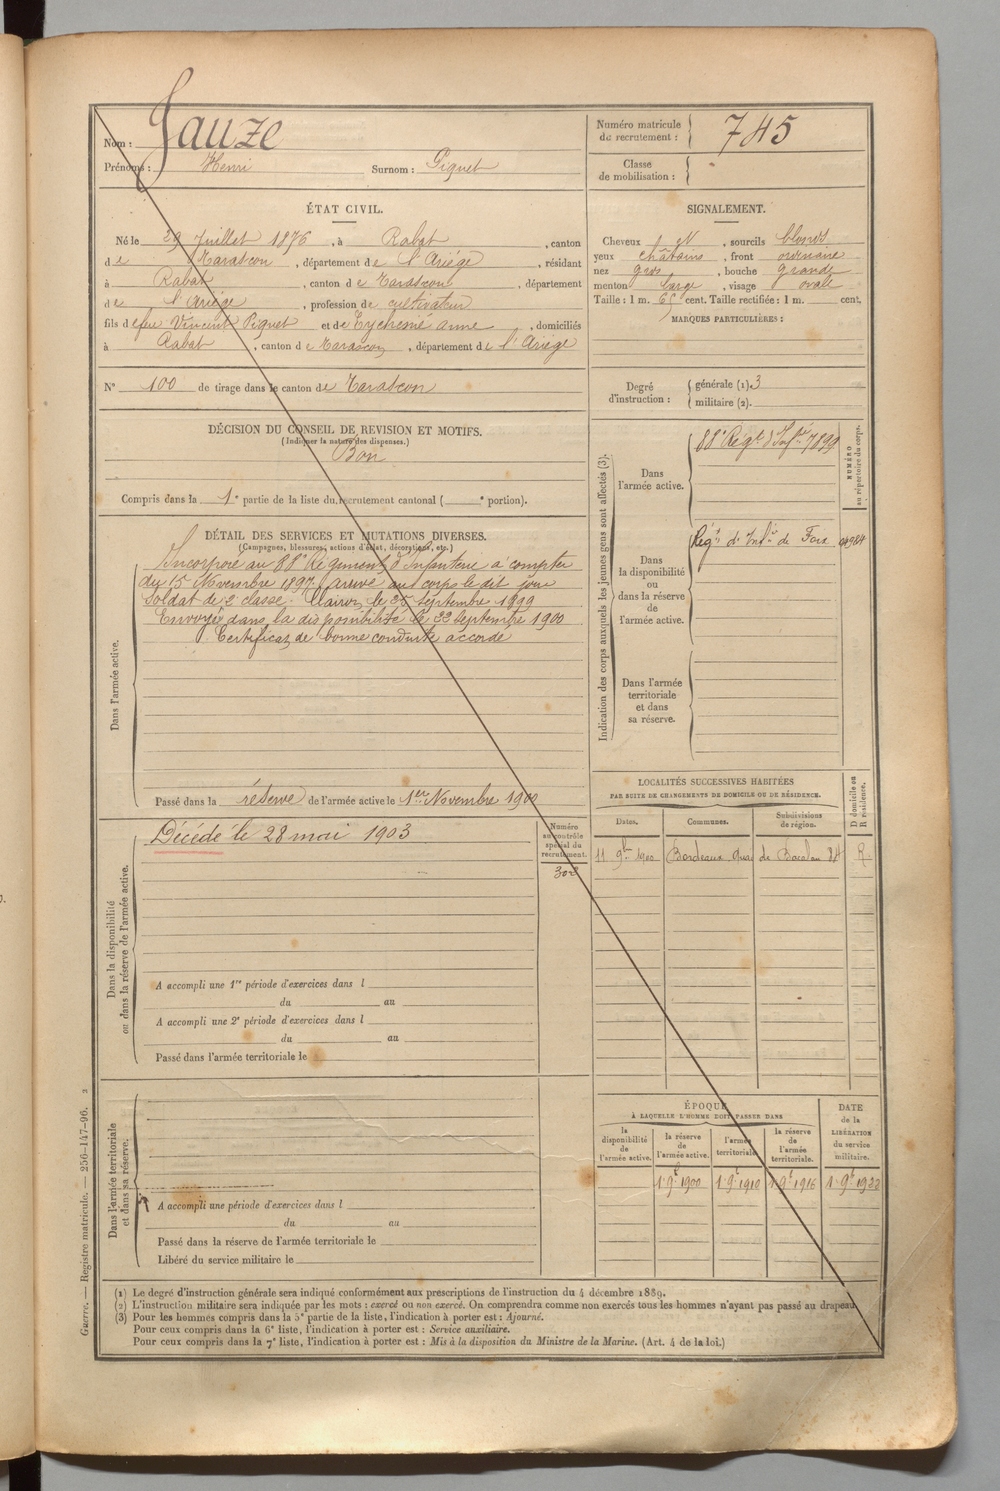 Nom : Gauze
Prénoms : Henri Surnom : Piquet
Numéro matricule du recrutement : 745
Classe de mobilisation :
ÉTAT CIVIL.
Né le 29 Juillet 1876, à Rabat, canton
de Tarascon, département de l'Ariége, résidant
à Rabat, canton de Tarascon, département
de l'Ariége, profession de cultivateur
fils de feu Vincent Piquet et de Eychenné anne, domiciliés
à Rabat, canton de Tarascon, département de l'Ariége
N° 100 de tirage dans le canton de Tarascon
DÉCISION DU CONSEIL DE REVISION ET MOTIFS.
(Indiquer la nature des dispenses.)
Bon
Compris dans la 1e partie de la liste du recrutement cantonal ( e portion).
DÉTAIL DES SERVICES ET MUTATIONS DIVERSES.
(Campagnes, blessures, actions d'éclat, décorations, etc.)
Dans l'armée active.
Incorporé au 88e Régiment d'Infanterie à compter
du 15 Novembre 1897, arrivé au corps le dit jour
Soldat de 2 classe. Clairon le 25 Septembre 1899
Envoyé dans la disponibilité le 22 Septembre 1900
Certificat de bonne conduite accordé
Passé dans la réserve de l'armée active le 1er Novembre 1900
Dans la disponibilité ou dans la réserve de l'armée active.
Décédé le 28 mai 1903
Numéro au contrôle spécial du recrutement.
302
A accompli une 1re période d'exercices dans l
du au
A accompli une 2e période d'exercices dans l
du au
Passé dans l'armée territoriale le
Dans l'armée territoriale et dans sa réserve.
A accompli une période d'exercices dans l
du au
Passé dans la réserve de l'armée territoriale le
Libéré du service militaire le
SIGNALEMENT.
Cheveux et, sourcils blonds
yeux châtains, front ordinaire
nez gros, bouche grande
menton large, visage ovale
Taille : 1 m. 65 cent. Taille rectifiée : 1 m. cent.
MARQUES PARTICULIÈRES :
Degré d'instruction :
générale (1). 3
militaire (2).
Indication des corps auxquels les jeunes gens sont affectés (3).
NUMÉRO au répertoire du corps.
Dans l'armée active.
88e Régt d'Infie 7899
Dans la disponibilité ou dans la réserve de l'armée active.
Régt d'Infie de Foix
Dans l'armée territoriale et dans sa réserve.
LOCALITÉS SUCCESSIVES HABITÉES
PAR SUITE DE CHANGEMENTS DE DOMICILE OU DE RÉSIDENCE.
Dates. Communes. Subdivisions de région. D domicile ou R résidence.
11 9bre 1900 Bordeaux quai de Bacalan 84 R
ÉPOQUE
À LAQUELLE L'HOMME DOIT PASSER DANS
la disponibilité de l'armée active.
la réserve de l'armée active.
l'armée territoriale.
la réserve de l'armée territoriale.
DATE de la LIBÉRATION du service militaire.
1 9bre 1900 1 9bre 1910 1 9bre 1916 1 9bre 1922
(1) Le degré d'instruction générale sera indiqué conformément aux prescriptions de l'instruction du 4 décembre 1889.
(2) L'instruction militaire sera indiquée par les mots : exercé ou non exercé. On comprendra comme non exercés tous les hommes n'ayant pas passé au drapeau.
(3) Pour les hommes compris dans la 5e partie de la liste, l'indication à porter est : Ajourné.
Pour ceux compris dans la 6e liste, l'indication à porter est : Service auxiliaire.
Pour ceux compris dans la 7e liste, l'indication à porter est : Mis à la disposition du Ministre de la Marine. (Art. 4 de la loi.)
Guerre. — Registre matricule. — 256-147-96. 2